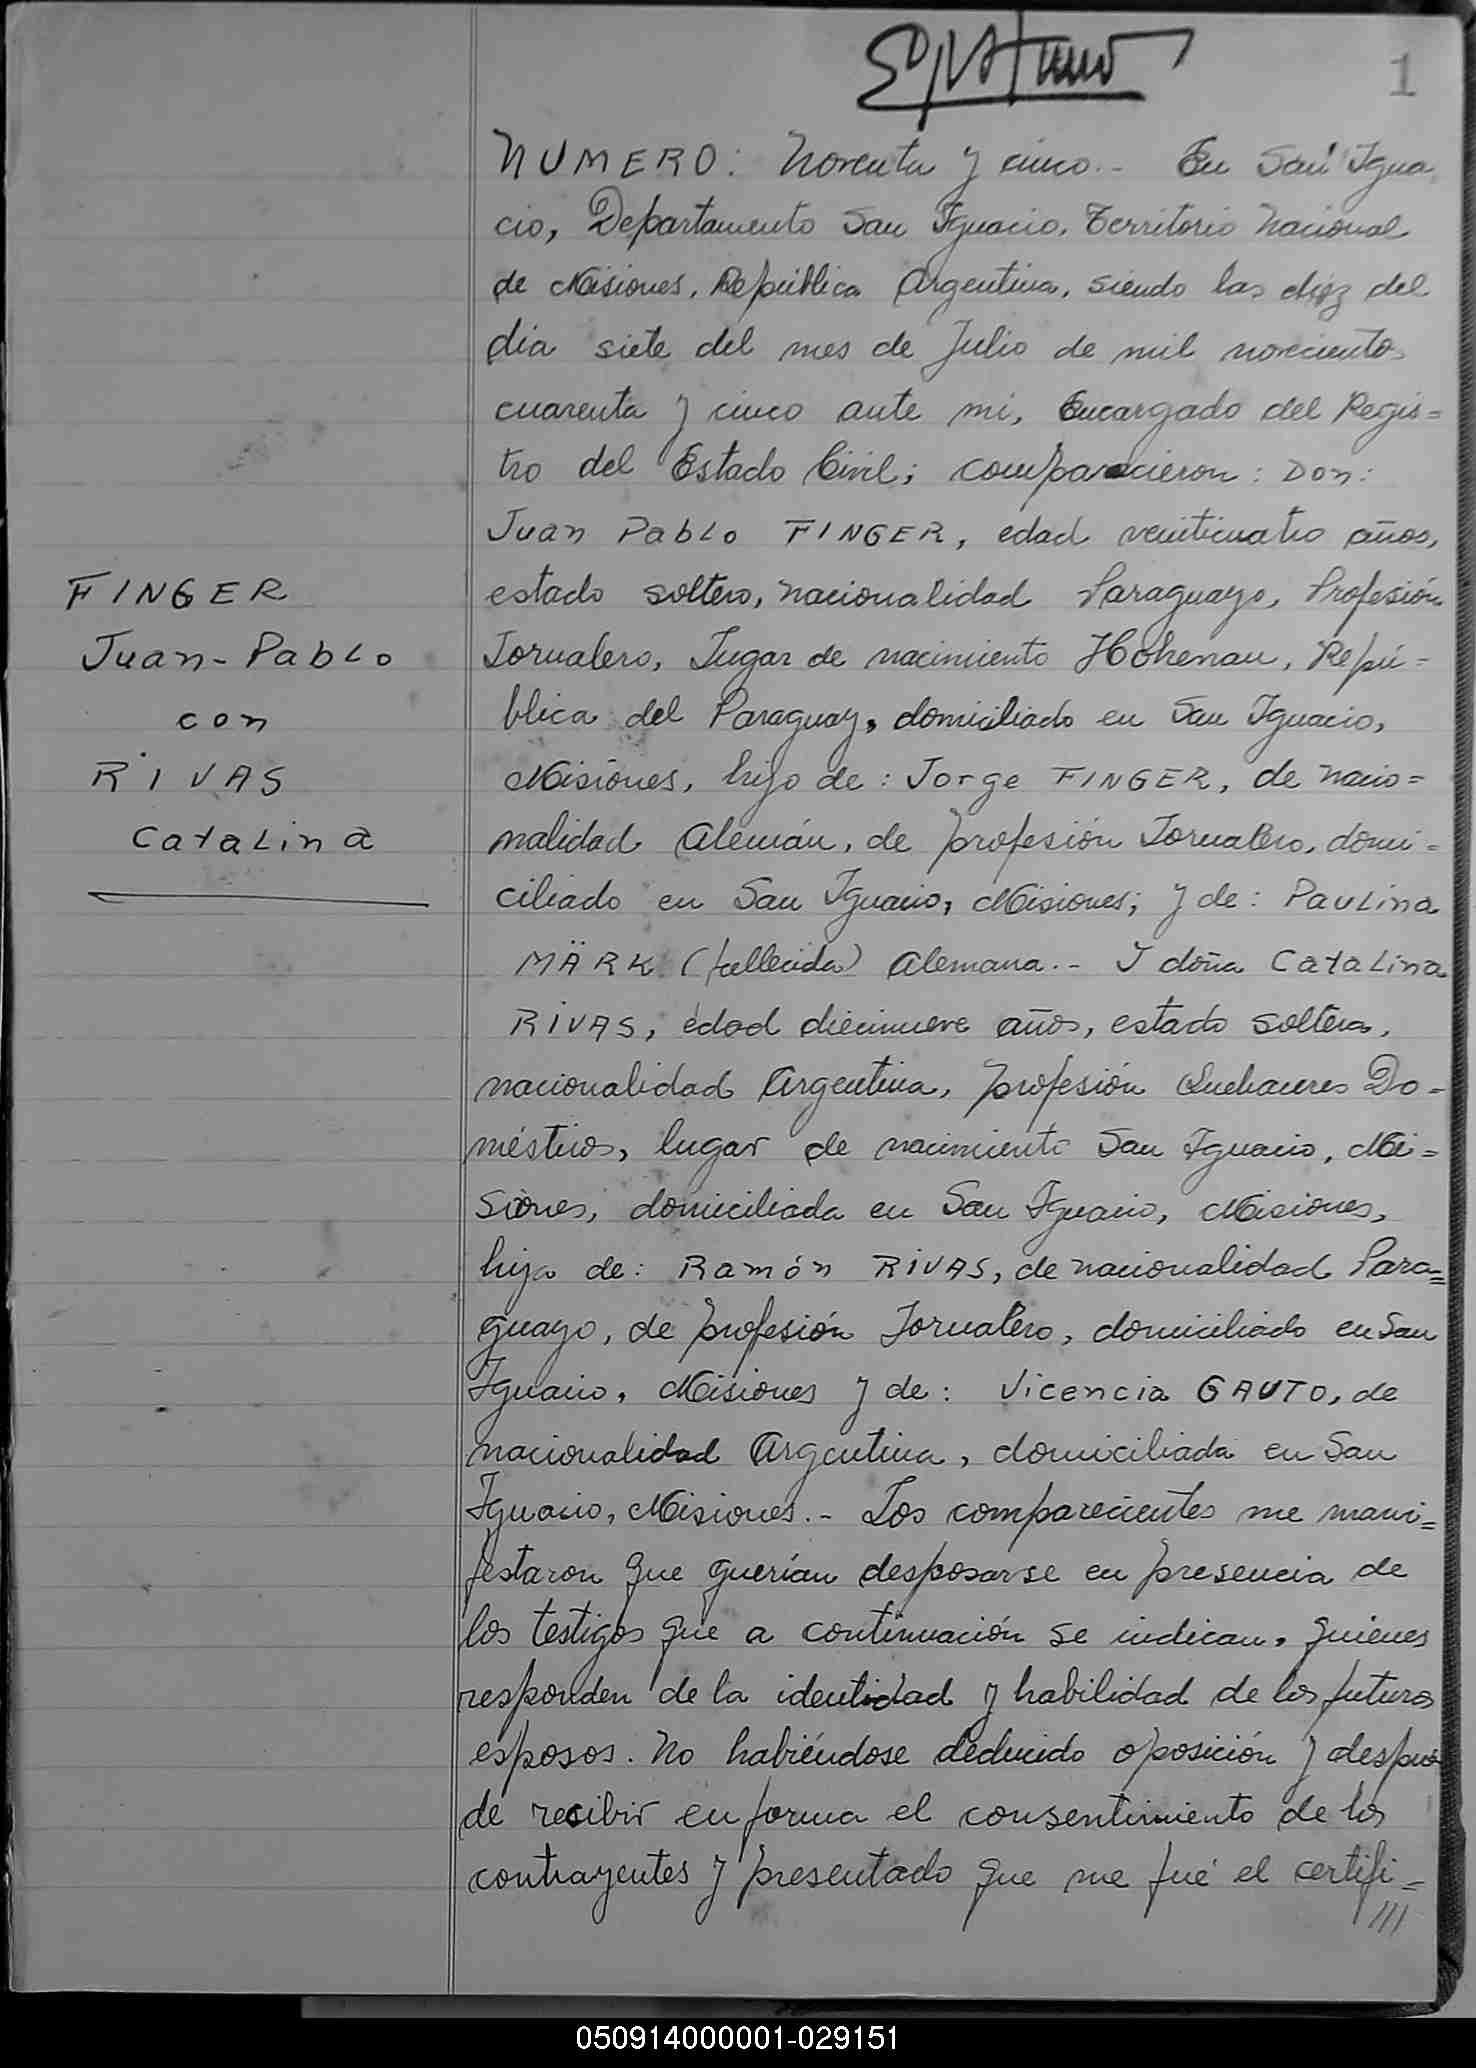 1
NUMERO: Noventa y cinco.- En San Igna
cio, Departamento San Ignacio, Territorio Nacional
de Misiones, República Argentina, siendo las diez del
día siete del mes de Julio de mil novecientos
cuarenta y cinco ante mi, Encargado del Regis=
tro del Estado Civil; comparecieron: Don:
Juan Pablo FINGER, edad veinticuatro años,
FINGER
Juan-Pablo
con
RIVAS
Catalina
estado soltero, nacionalidad Paraguayo, Profesión
Jornalero, Lugar de nacimiento Hohenau, Repú=
blica del Paraguay, domiciliado en San Ignacio,
Misiones, hijo de: Jorge FINGER, de nacio=
nalidad Alemán, de profesión Jornalero, domi=
ciliado en San Ignacio, Misiones; y de: Paulina
MÄRK (fallecida) Alemana.- Y doña Catalina
RIVAS, edad diecinueve años, estado soltera,
nacionalidad Argentina, profesión Quehaceres Do=
mésticos, lugar de nacimiento San Ignacio, Mi=
siones, domiciliada en San Ignacio, Misiones,
hija de: Ramón RIVAS, de nacionalidad Para=
guayo, de profesión Jornalero, domiciliado en San
Ignacio, Misiones y de: Vicencia GAUTO, de
nacionalidad Argentina, domiciliada en San
Ignacio, Misiones.- Los comparecientes me mani=
festaron que querían desposarse en presencia de
los testigos que a continuación se indican, quienes
responden de la identidad y habilidad de los futuros
esposos. No habiéndose deducido oposición y después
de recibir en forma el consentimiento de los
contrayentes y presentado que me fué el certifi=
///
050914000001-029151